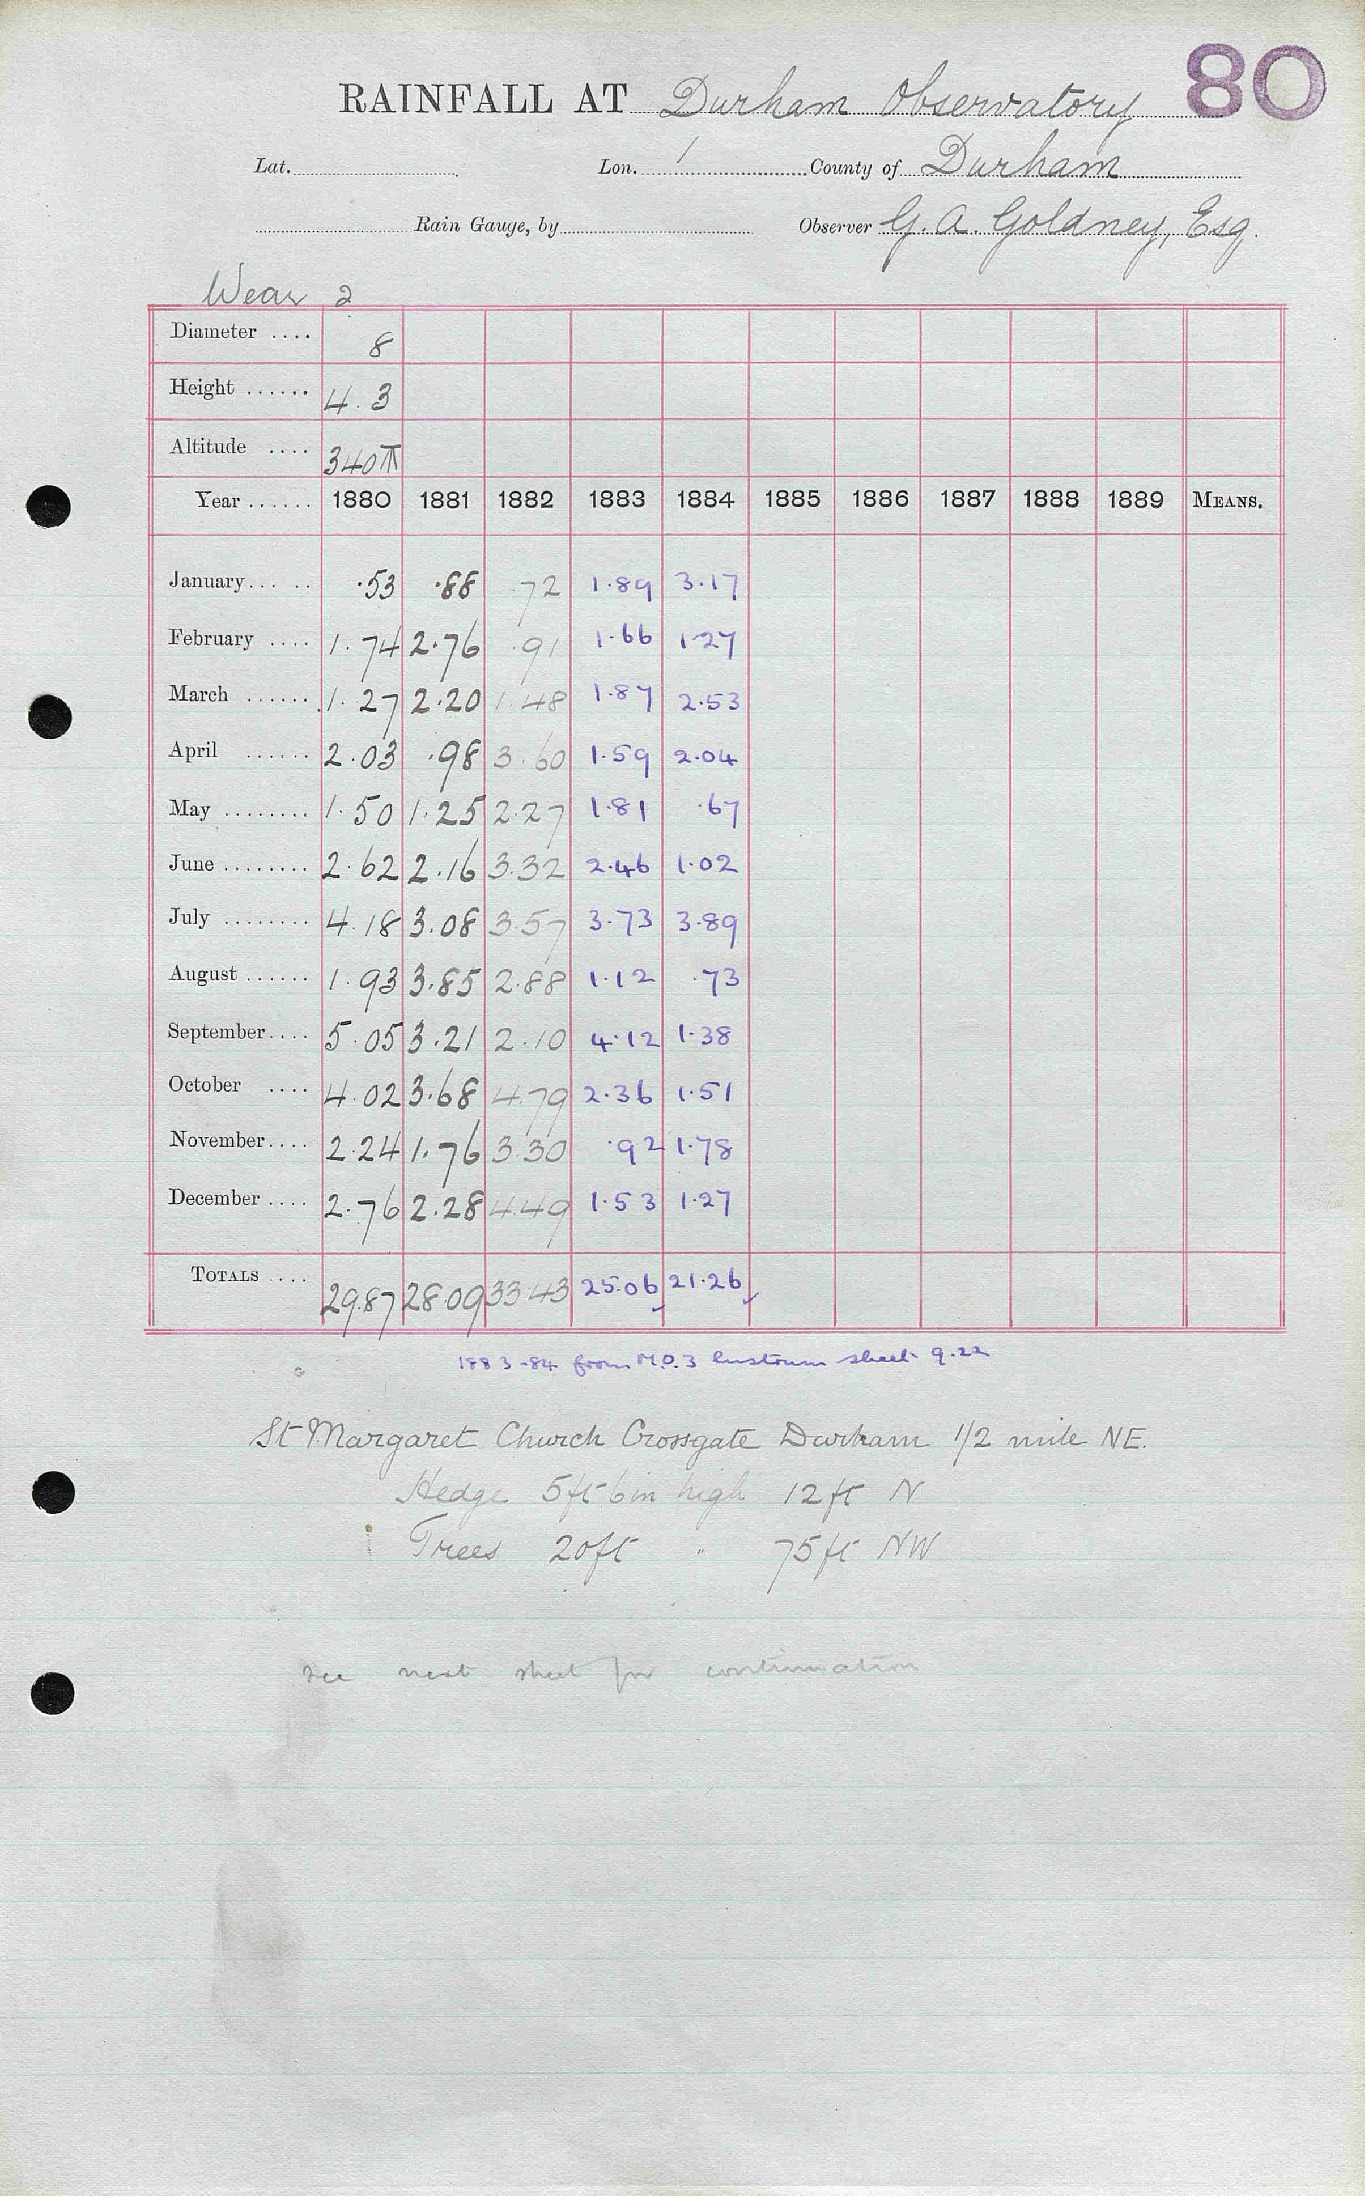 80
RAINFALL AT Durham Observatory
Lat. Lon. / County of Durham
Rain Gauge, by Observer G. A. Goldney, Esq.
Wear 2
Diameter .... 8
Height ...... 4.3
Altitude .... 340
Year ...... 1880 1881 1882 1883 1884 1885 1886 1887 1888 1889 MEANS.
January..... .53 .88 .72 1.89 3.17
February .... 1.74 2.76 .91 1.66 1.27
March ...... 1.27 2.20 1.48 1.87 2.53
April ...... 2.03 .98 3.60 1.59 2.04
May ........ 1.50 1.25 2.27 1.81 .67
June ........ 2.62 2.16 3.32 2.46 1.02
July ........ 4.18 3.08 3.57 3.73 3.89
August ...... 1.93 3.85 2.88 1.12 .73
September.... 5.05 3.21 2.10 4.12 1.38
October .... 4.02 3.68 4.79 2.36 1.51
November.... 2.24 1.76 3.30 .92 1.78
December .... 2.76 2.28 4.49 1.53 1.27
TOTALS .... 29.87 28.09 33.43 25.06 21.26
1883-84 from M.O.3 lustrum sheet 9.22
St Margaret Church Crossgate Durham 1/2 mile NE.
Hedge 5ft 6in high 12ft N
Trees 20ft " 75ft NW
see next sheet for continuation